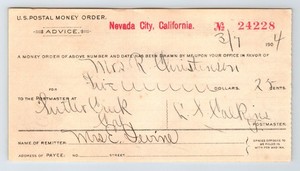 U.S. POSTAL MONEY ORDER.
ADVICE.
Nevada City, California.
№ 24228
3/7 1904
A MONEY ORDER OF ABOVE NUMBER AND DATE HAS BEEN DRAWN BY ME UPON YOUR OFFICE IN FAVOR OF
Mrs R Christenson
DOLLARS. 25 CENTS
TO THE POSTMASTER AT
Sutter Creek
Cal
POSTMASTER
NAME OF REMITTER
Mrs E Levine
ADDRESS OF PAYEE: NO. STREET